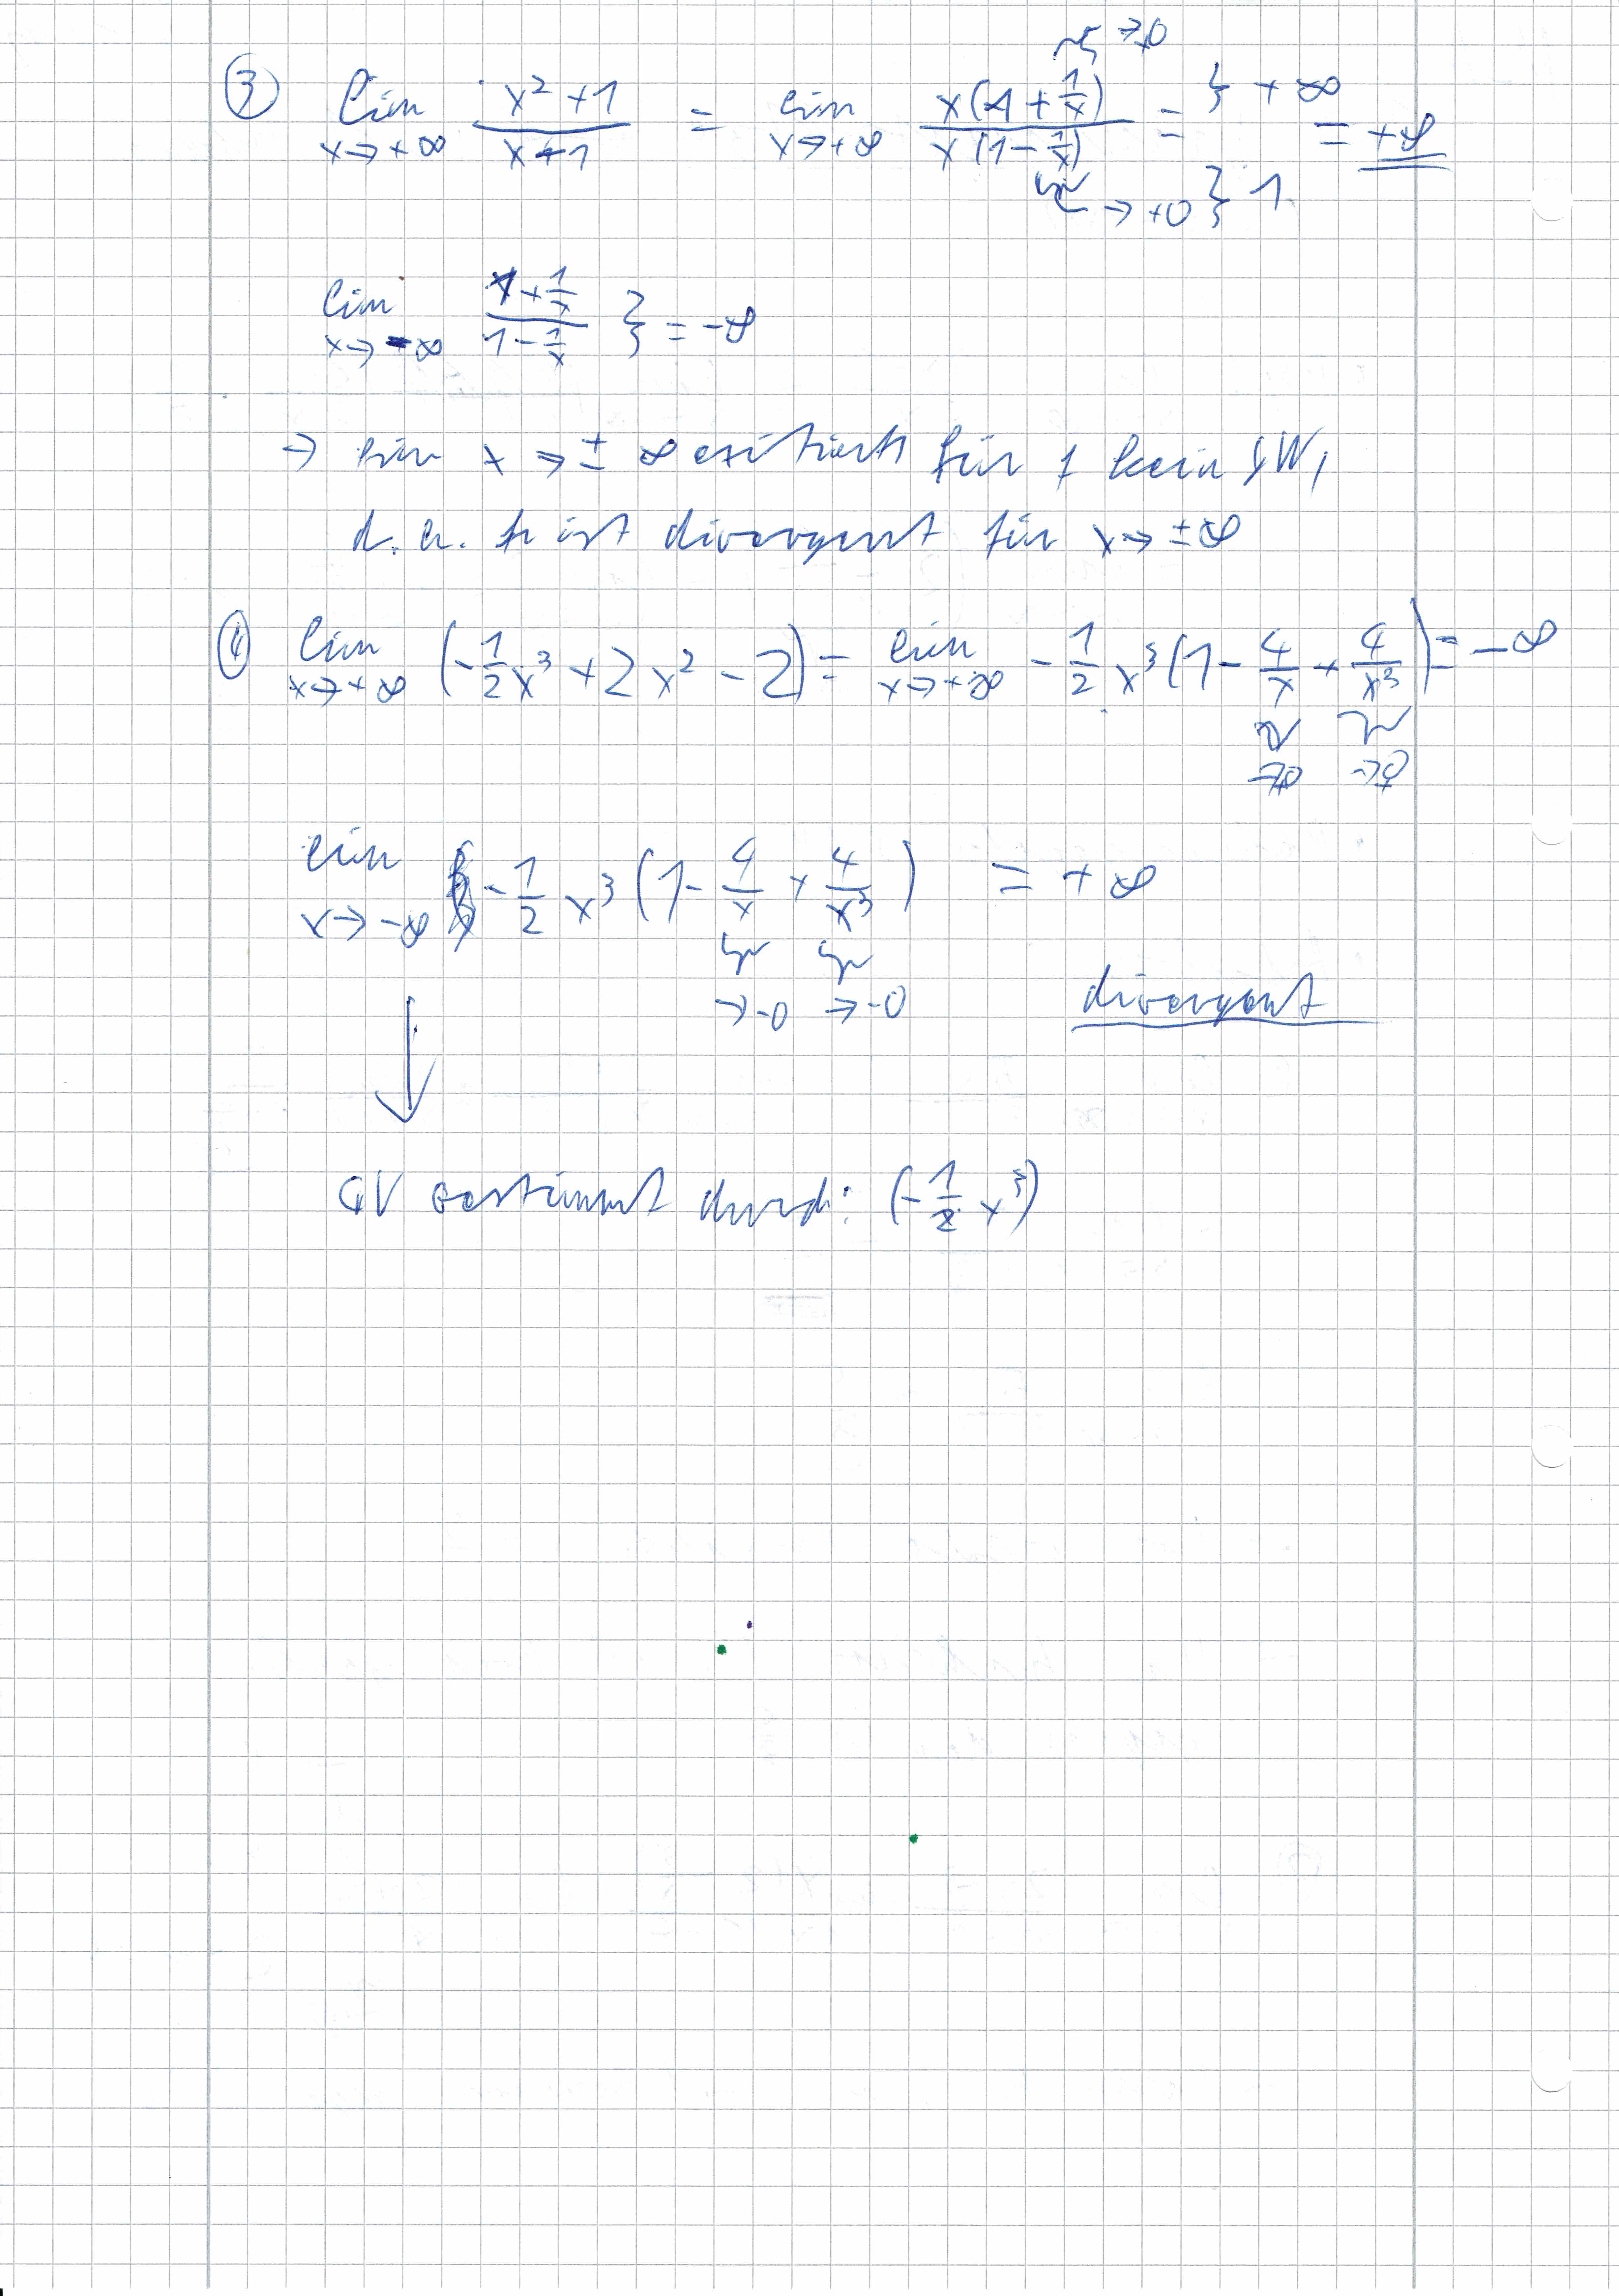 ③ lim x→+∞ (x²+1)/(x-1) = lim x→+∞ x(x + 1/x)/x(1 - 1/x) = } +∞ = +∞
→+0
→+0 } 1
lim x→-∞ (x + 1/x)/(1 - 1/x) } = -∞
→ für x→± ∞ existiert für f kein GW,
d.h. f ist divergent für x→ ±∞
④ lim x→+∞ (-1/2 x³ + 2x² - 2) = lim x→+∞ -1/2 x³ (1 - 4/x + 4/x³) = -∞
→+0 →+0
lim x→-∞ -1/2 x³ (1 - 4/x + 4/x³) = +∞
→-0 →-0
divergent
↓
GV bestimmt durch: (-1/2 x³)